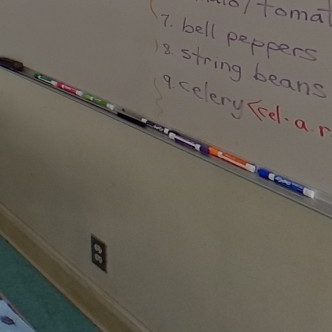 tomat
7. bell peppers
8. string beans
9. celery <cel.a.r